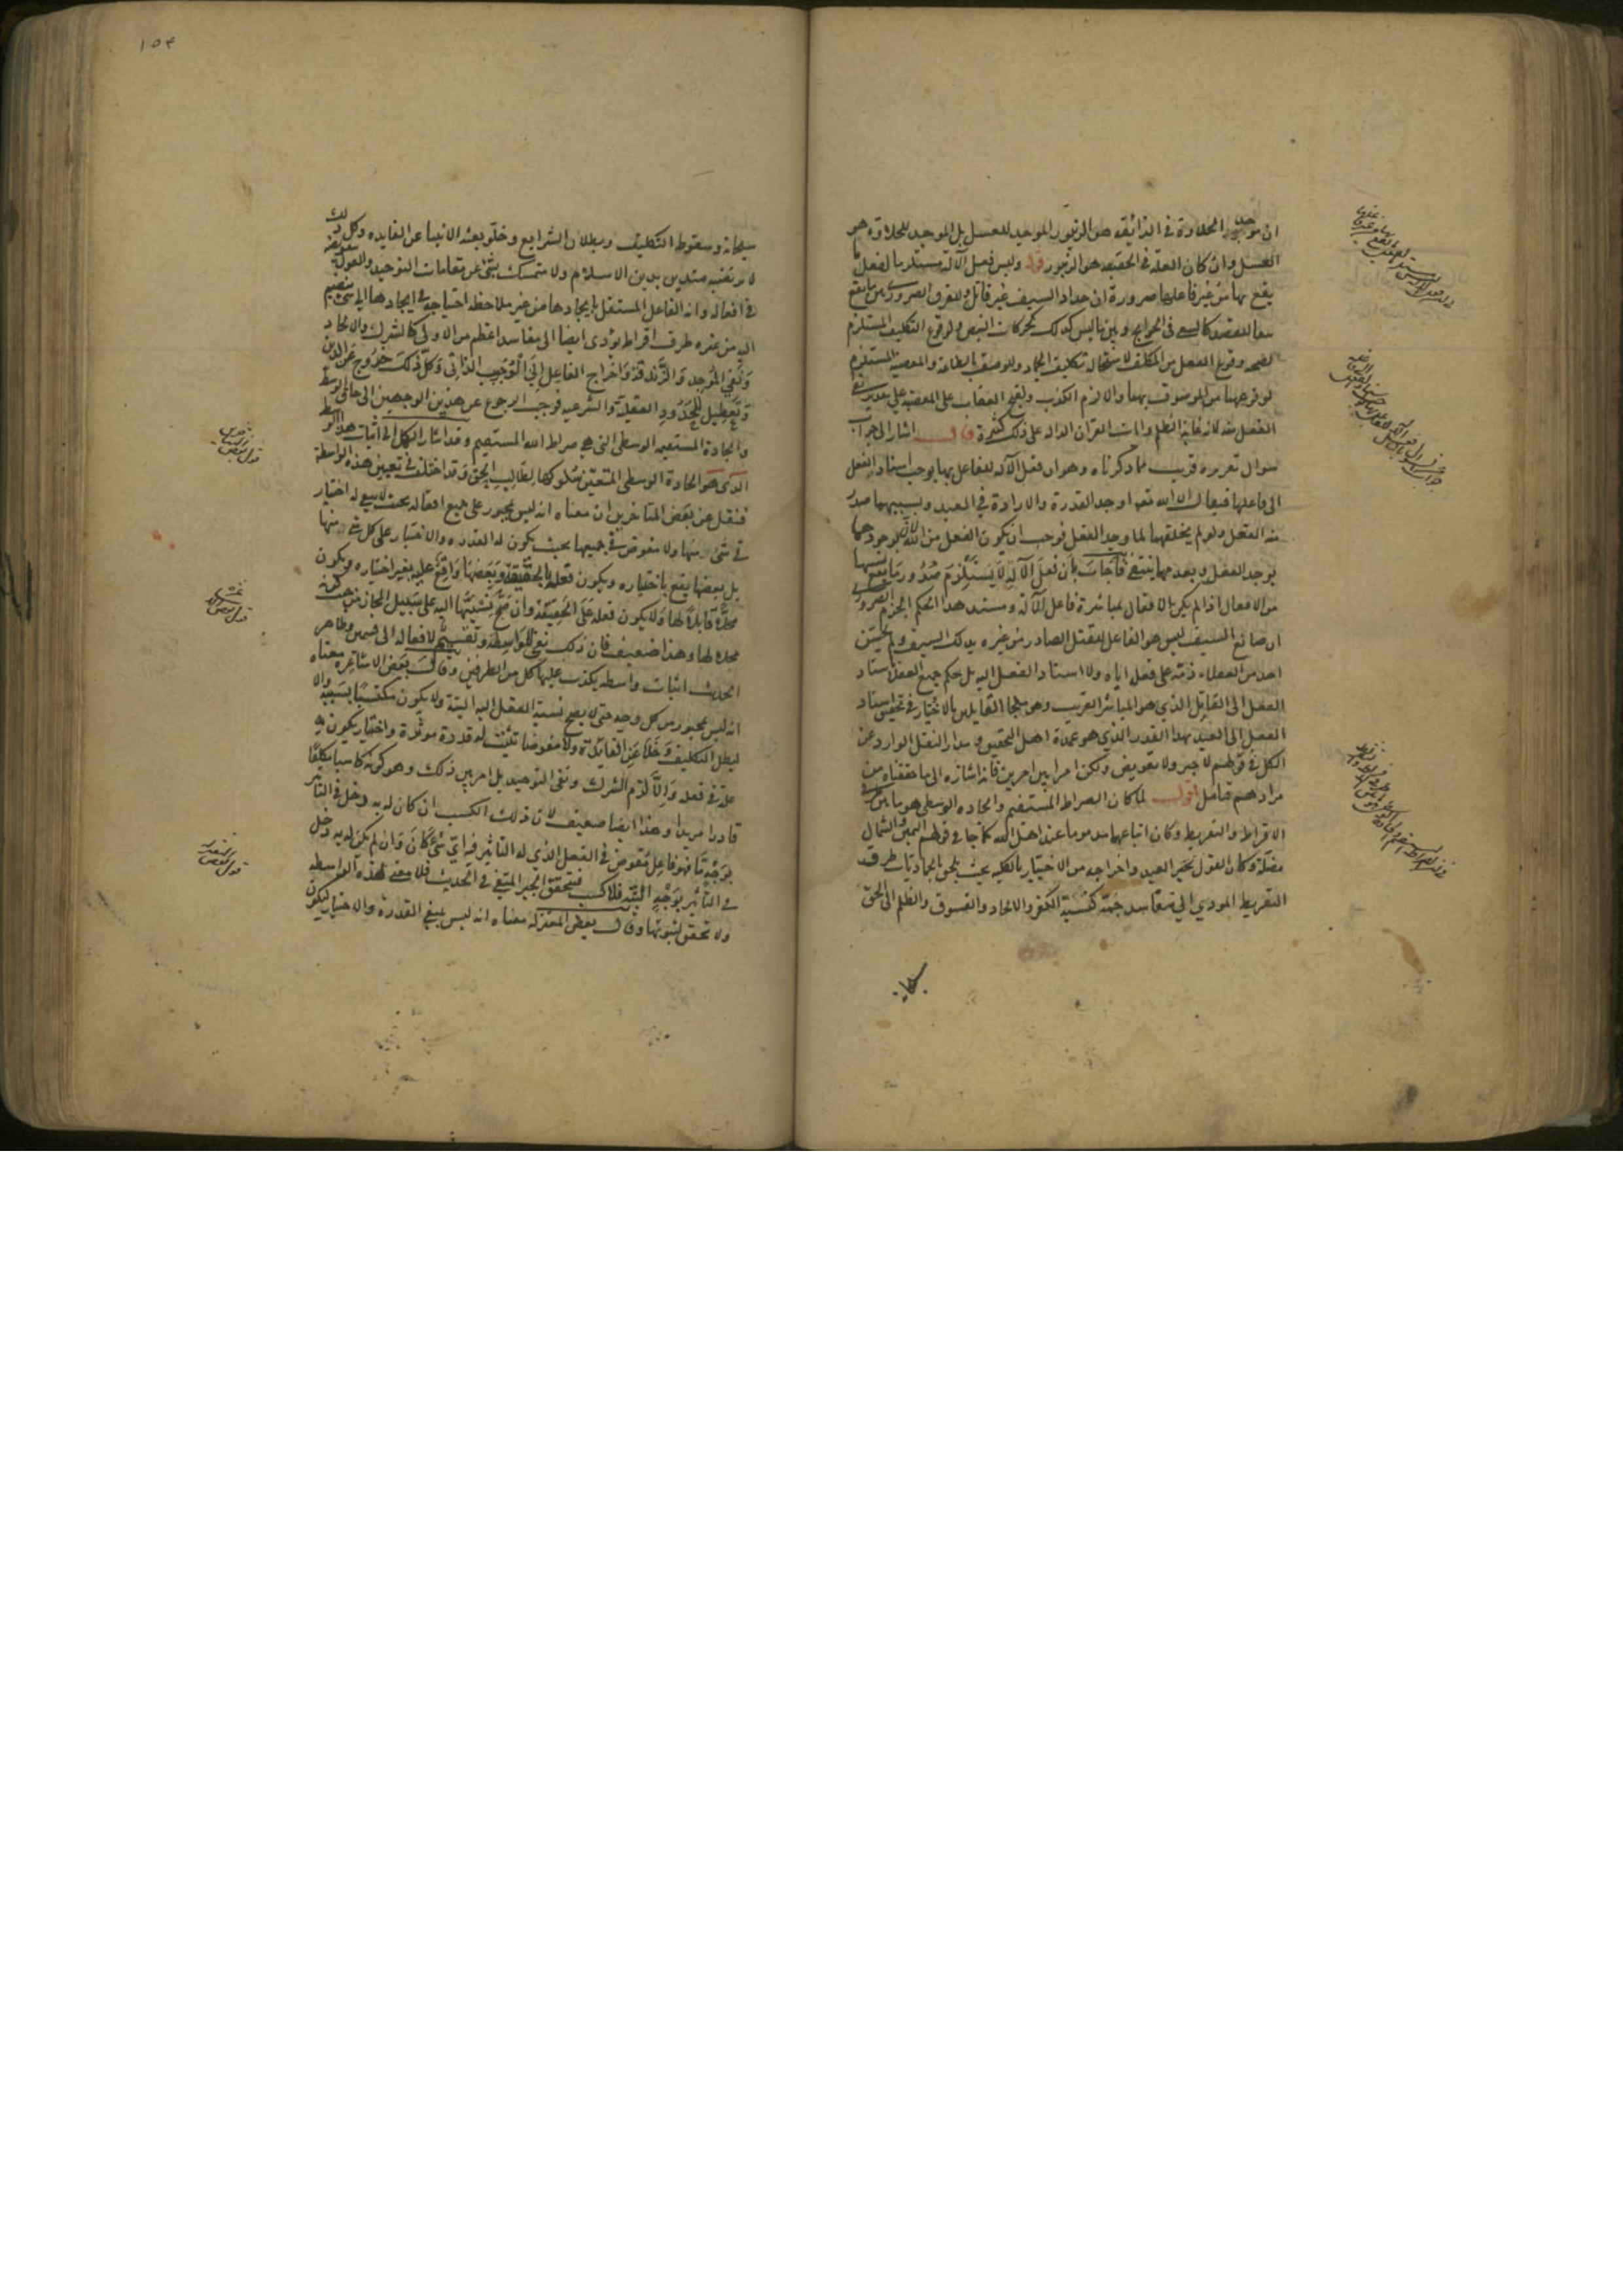 ان موجد الحلاوة في الذائقه هو الزنبور الموجد للعسل بل الموجد للحلاوة هو
العسل وان كان العلة في الحقيقه هو الزنبور قوله وليس فعل الآلة مستلزما لفعل ما
يقع بها من غير فاعلها ضرورة ان حداد السيف غير قاتل وللفرق الضروري بين ما يقع
تبعا للقصد كالسعي في الحوايج وبين ما ليس كذلك كحركات النبض ولوقوع التكليف المستلزم
لصحه وقوع الفعل من المكلف لاستحالة تكليف الجماد وللوصف بالطاعة والمعصية المستلزم
لوقوعهما من الموصوف بهما والا لزم الكذب ولقبح العقاب على المعصيه على تقدير نفي
الفعل منه لانه غاية الظلم وايات القران الداله على ذلك كثيرة قال اشار الى جواب
سوال تقريره قريب مما ذكرناه وهو ان فعل الآله للفاعل بها يوجب اسناد الفعل
الى فاعلها فيقال ان الله تعالى اوجد القدرة والارادة في العبد وبسببهما صدر
منه الفعل ولو لم يخلقهما لما وجد الفعل فوجب ان يكون الفعل من الله لان بوجودهما
يوجد الفعل وبعدمهما ينتفي فاجاب بان فعل الآلة لا يستلزم صدور ما يقع بسببها
من الافعال اذا لم يكن الافعال لمباشرة فاعل الآلة ومستند هذا الحكم الجزم الضروري
ان صانع السيف ليس هو الفاعل للقتل الصادر من غيره بذلك السيف ولم يحسن
احد من العقلاء ذمه على فعله اياه ولا اسناد الفعل اليه بل حكم جميع العقلا باسناد
الفعل الى القاتل الذي هو المباشر القريب وهو ملجا القايلين بالاختيار في تحقيق اسناد
الفعل الى العبد بهذا القدر الذي هو عمدة اهل التحقيق ومدار النقل الوارد عن
الكل في قولهم لا جبر ولا تفويض ولكن امر بين امرين فانه اشارة الى ما حققناه من
مرادهم فتامل اقول لما كان الصراط المستقيم والجاده الوسطى هو ما بين طرفي
الافراط والتفريط وكان اتباعهما مذموما عند اهل الله كما جا في قولهم اليمين والشمال
مضلة وكان القول بجبر العبد واخراجه من الاختيار بالكليه بحيث يلحق بالجماديات طرف
التفريط المودي الى مفاسد جمة كنسبة الكفر والالحاد والفسوق والظلم الى الحق
سبحانه
١٥٤
سبحانه وسقوط التكليف وبطلان الشرايع وخلو بعثه الانبيا عن الفايده وكل ذلك
لا يرتضيه متدين بدين الاسلام ولا متمسك بشئ من مقامات التوحيد والقول بتفويضه
في افعاله وانه الفاعل المستقل بايجادها من غير ملاحظه احتياجه في ايجادها الى شئ منضم
اليه من غيره طرف افراط يؤدي ايضا الى مفاسد اعظم من الاولى كالشرك والالحاد
ونفي الموجد والزندقة واخراج الفاعل الى الموجب الذاتي وكل ذلك خروج عن الدين
وتعطيل للحدود العقلية والشرعيه فوجب الرجوع عن هذين الوجهين الى حاق الوسط
والجادة المستقيمه الوسطى التي هي صراط الله المستقيم وقد اشار الكل الى اثبات هذا الوسط
الذي هو الجادة الوسطى المتعين سلوكها لطالب الحق وقد اختلف في تعيين هذه الواسطة
فنقل عن بعض المتاخرين ان معناه انه ليس بمجبور على جميع افعاله بحيث لا يبقى له اختيار
في شئ منها ولا مفوض في جميعها بحيث يكون له القدره والاختيار على كل شئ منها
بل بعضها يقع باختياره ويكون فعله بالحقيقة وبعضها واقع عليه بغير اختياره ويكون
محلا قابلا لها ولا يكون فعله على الحقيقة وان صح نسبتها اليه على سبيل المجاز من حيث كونه
محلا لها وهذا ضعيف فان ذلك نفي للواسطة وتقسيم لافعاله الى قسمين وظاهر
الحديث اثبات واسطه يكذب عليها كل من الطرفين وقال بعض الاشاعره معناه
انه ليس بمجبور من كل وجه حتى لا يصح نسبة الفعل اليه البتة ولا يكون مكتسبا بسببه والا
لبطل التكليف وخلا عن الفائدة ولا مفوضا تثبت له قدرة موثرة واختيار يكون هو
علة في فعله والا لزم الشرك ونفي التوحيد بل امر بين ذلك وهو كونه كاسبا مكلفا
قادرا مريدا وهذا ايضا ضعيف لان ذلك الكسب ان كان له به دخل في التاثير
بوجه ما فهو فاعل مفوض في الفعل الذي له التاثير فيه اي شئ كان وان لم يكن له به دخل
في التاثير بوجه البتة فلا كسب فتحقق الجبر المنفي في الحديث فلا معنى لهذه الواسطه
ولا تحقق لثبوتها وقال بعض المعتزلة معناه انه ليس بمنفي القدرة والاختيار ليكون